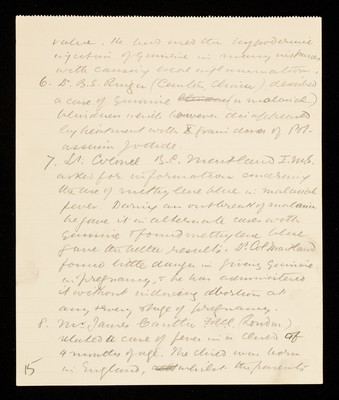 value. He had used the hypodermic
injection of Quinine in many instances
with causing local inflammation.
6. Dr. G.S. (Ceylon) described
a case of Quinine (a malarial)
blindness which however disappeared
by treatment with X grain doses of Pot-
assium Iodide.
7. Lt. Colonel B.C. Maitland I.M.S.
asked for information concerning
the use of methylene blue in malarial
fever. During an outbreak of malaria
he gave it in alternate cases with
Quinine & found methylene blue
gave the better results. Lt. Col. Maitland
found little danger in giving Quinine
in pregnancy, & he has administered
it without inducing abortion at
any stage of pregnancy.
8. Mr. James Cantlie (London)
related a case of fever in a child of
4 months of age. The child was born
in England, whilst the parents
15